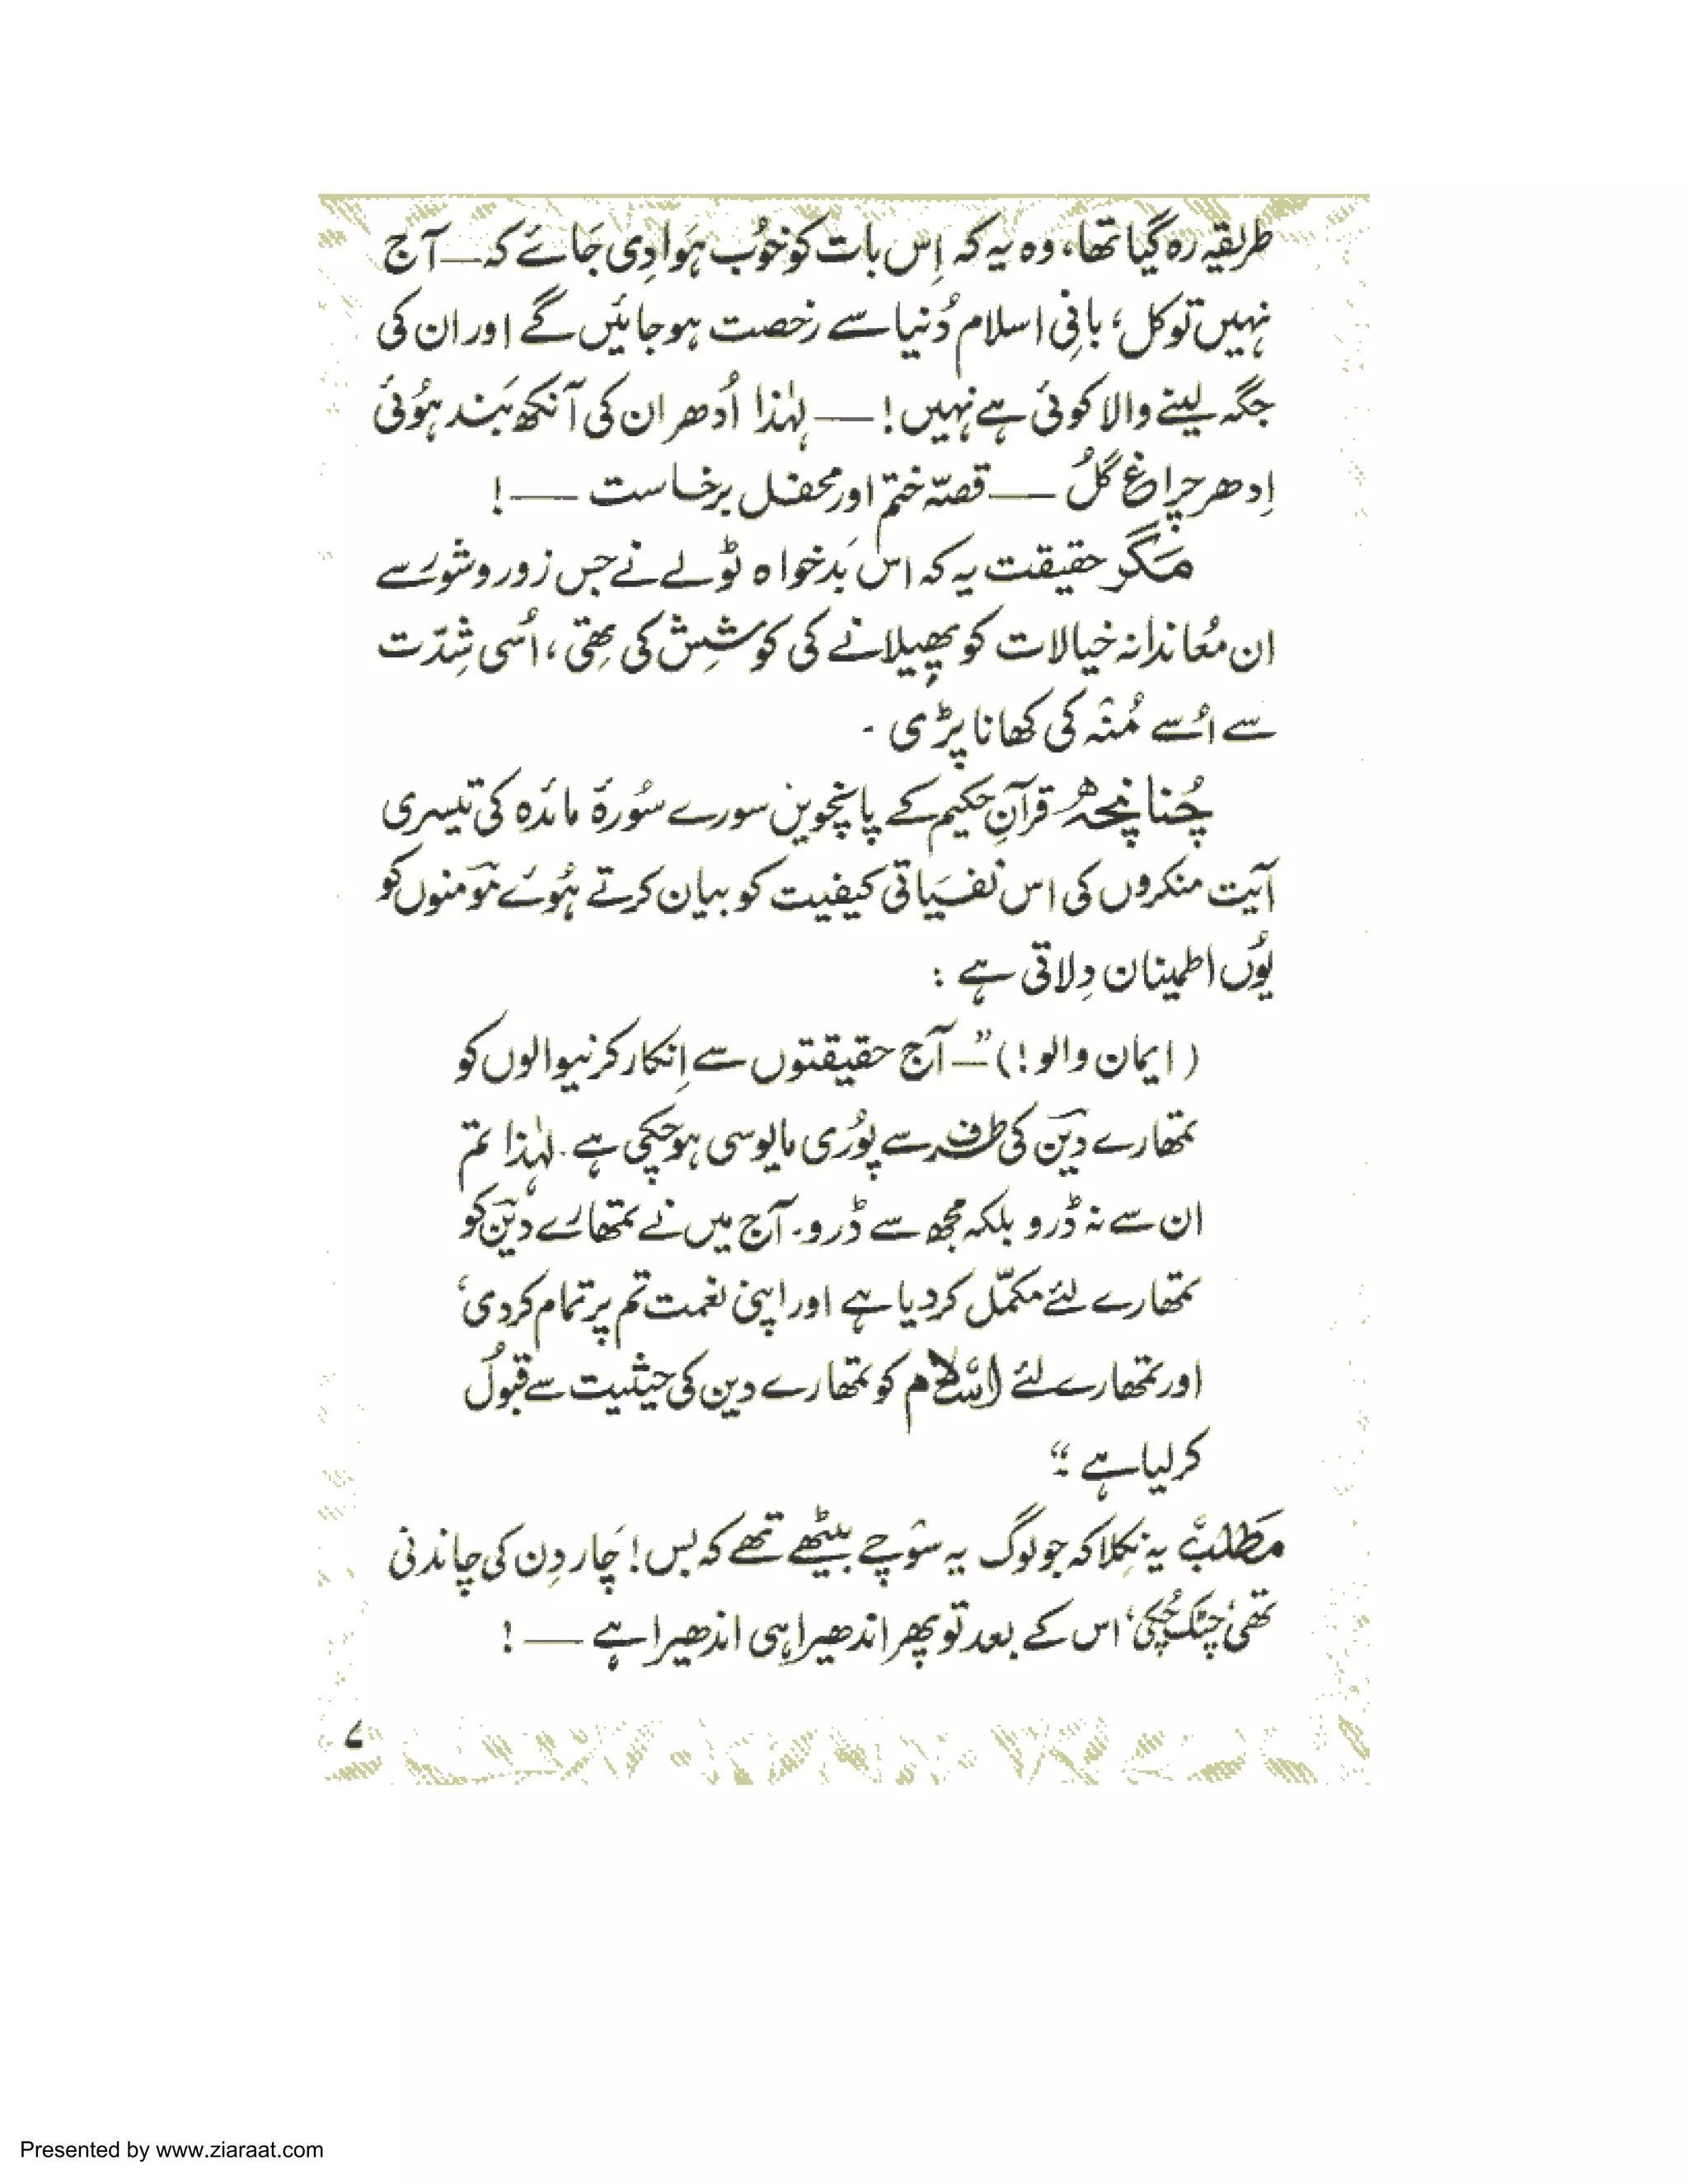 طریقہ رہ گیا تھا، وہ یہ کہ اِس بات کو خوُب ہَوا دِی جَائے کہ — آج
نہیں تو کل، بانیِ اسلام دُنیا سے رخصت ہوجائیں گے اور ان کی
جگہ لینے والا کوئی ہے نہیں! — لہٰذا اُدھر ان کی آنکھ بَند ہوُئی
اِدھر چراغ گلُ — قصّہ ختم اور محفل برخاست — !
مَگر حقیقت یہ کہ اس بَدخواہ ٹولے نے جس زور و شور سے
ان مُعاندانہ خیالات کو پھیلانے کی کوشِش کی تھی، اُسی شِدّت
سے اُسے مُنہ کی کھانا پڑی ۔
چُنانچہ قرآنِ حکیم کے پانچویں سورے سُورۂ مائدہ کی تیسری
آیت منکروں کی اس نفسَیاتی کیفیت کو بیان کرتے ہُوئے مؤمنوں کو
یوُں اطمینان دِلاتی ہے :
( ایمان والو! ) — ”آج حقیقتوں سے اِنکار کرنیوالوں کو
تمھارے دین کی طرف سے پُوری مایوسی ہوچکی ہے۔ لہٰذا تم
ان سے نہ ڈرو بلکہ مجھ سے ڈرو۔ آج میں نے تمھارے دین کو
تمھارے لئے مکمّل کردیا ہے اور اپنی نعمت تم پر تمام کردی،
اور تمھارے لئے اسلام کو تمھارے دین کی حیثیت سے قبوُل
کرلیا ہے۔“
مَطلب یہ نِکلا کہ جو لوگ یہ سوچے بیٹھے تھے کہ بس! چَار دِن کی چاندنی
تھی، چٹک چُکی، اس کے بعد تو پھر اندھیرا ہی اندھیرا ہے — !
۷
Presented by www.ziaraat.com